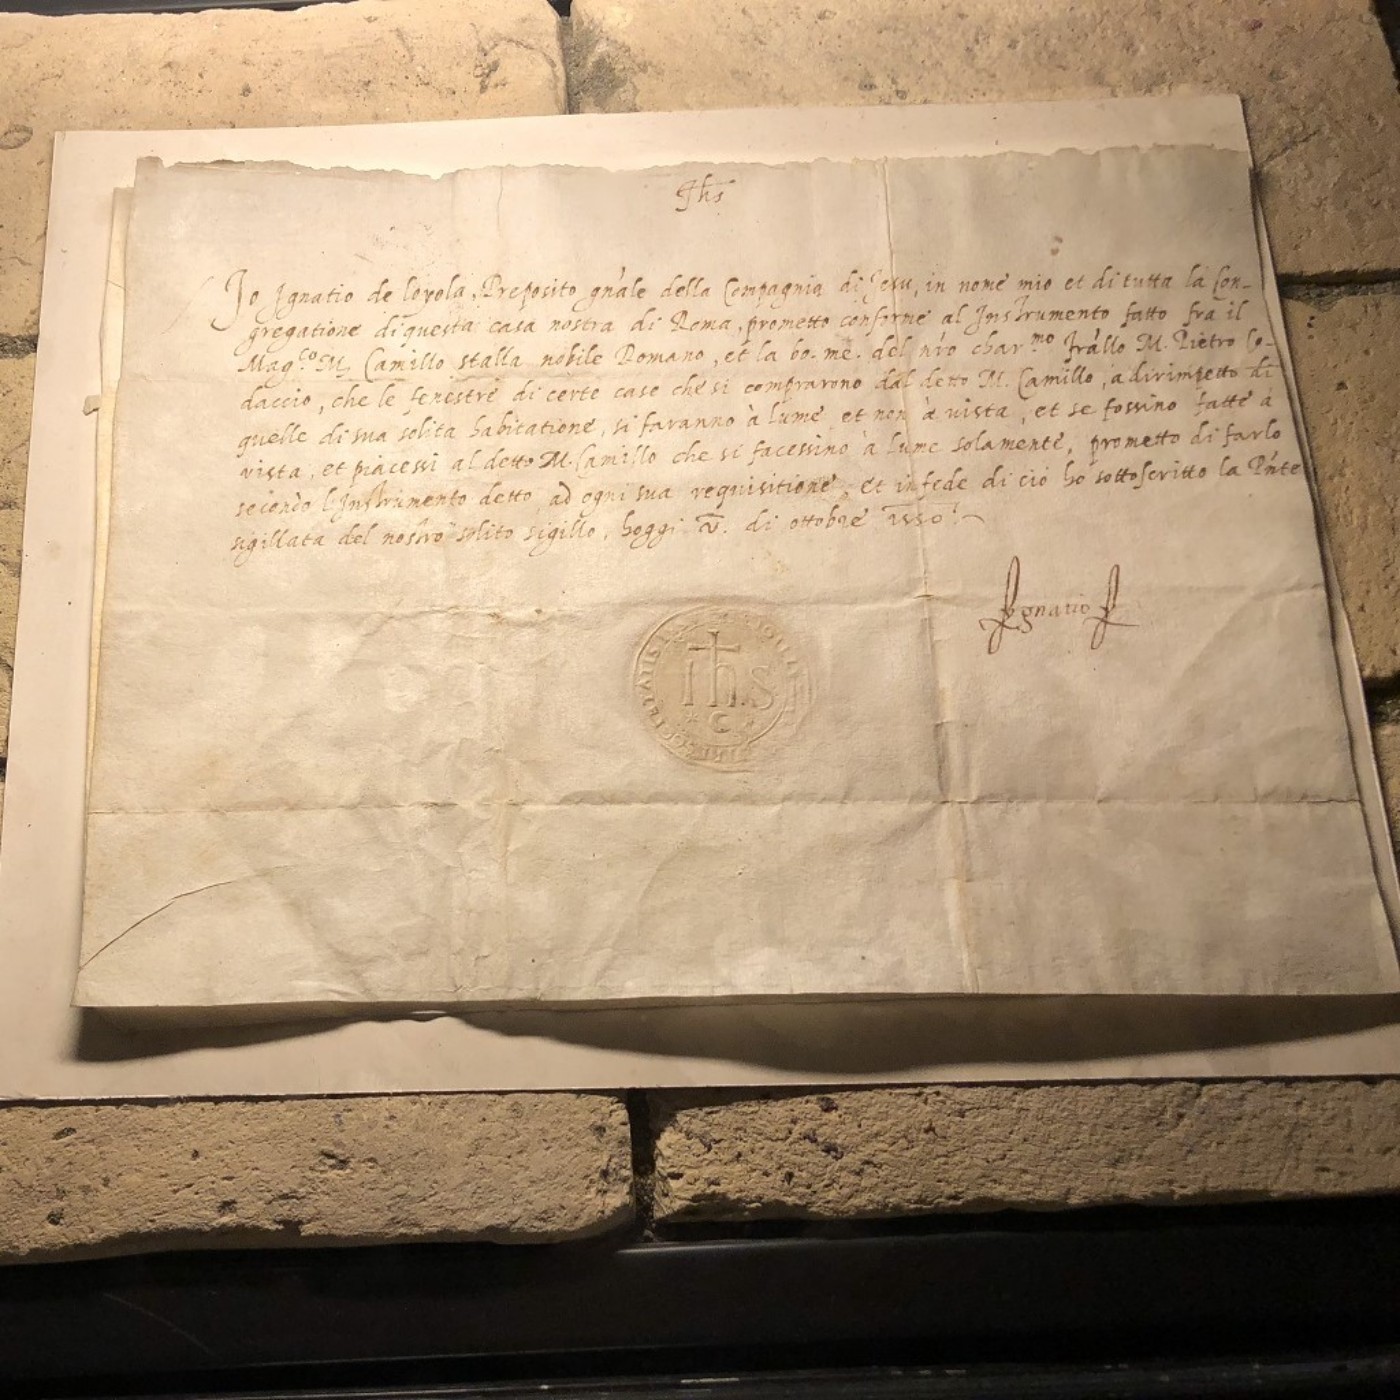 Jhs
Io Ignatio de loyola, Preposito gn'ale della Compagnia di Jesu, in nome mio et di tutta la Con-
gregatione di questa casa nostra di Roma, prometto conforme al Instrumento fatto fra il
Mag.co M. Camillo stalla nobile Romano, et la bo. me. del nro char.mo frallo M. Pietro Co-
daccio, che le fenestre di certe case che si comprarono dal detto M. Camillo, a dirimpetto di
quelle di sua solita habitatione, si faranno à lume et non à vista, et se fossino fatte à
vista, et piacessi al detto M. Camillo che si facessino à lume solamente, prometto di farlo
secondo l'Instrumento detto, ad ogni sua requisitione. Et in fede di ciò ho sottoscritto la Pnte
sigillata del nostro solito sigillo, hoggi V. di ottobre 1550.
Ignatio
ihs